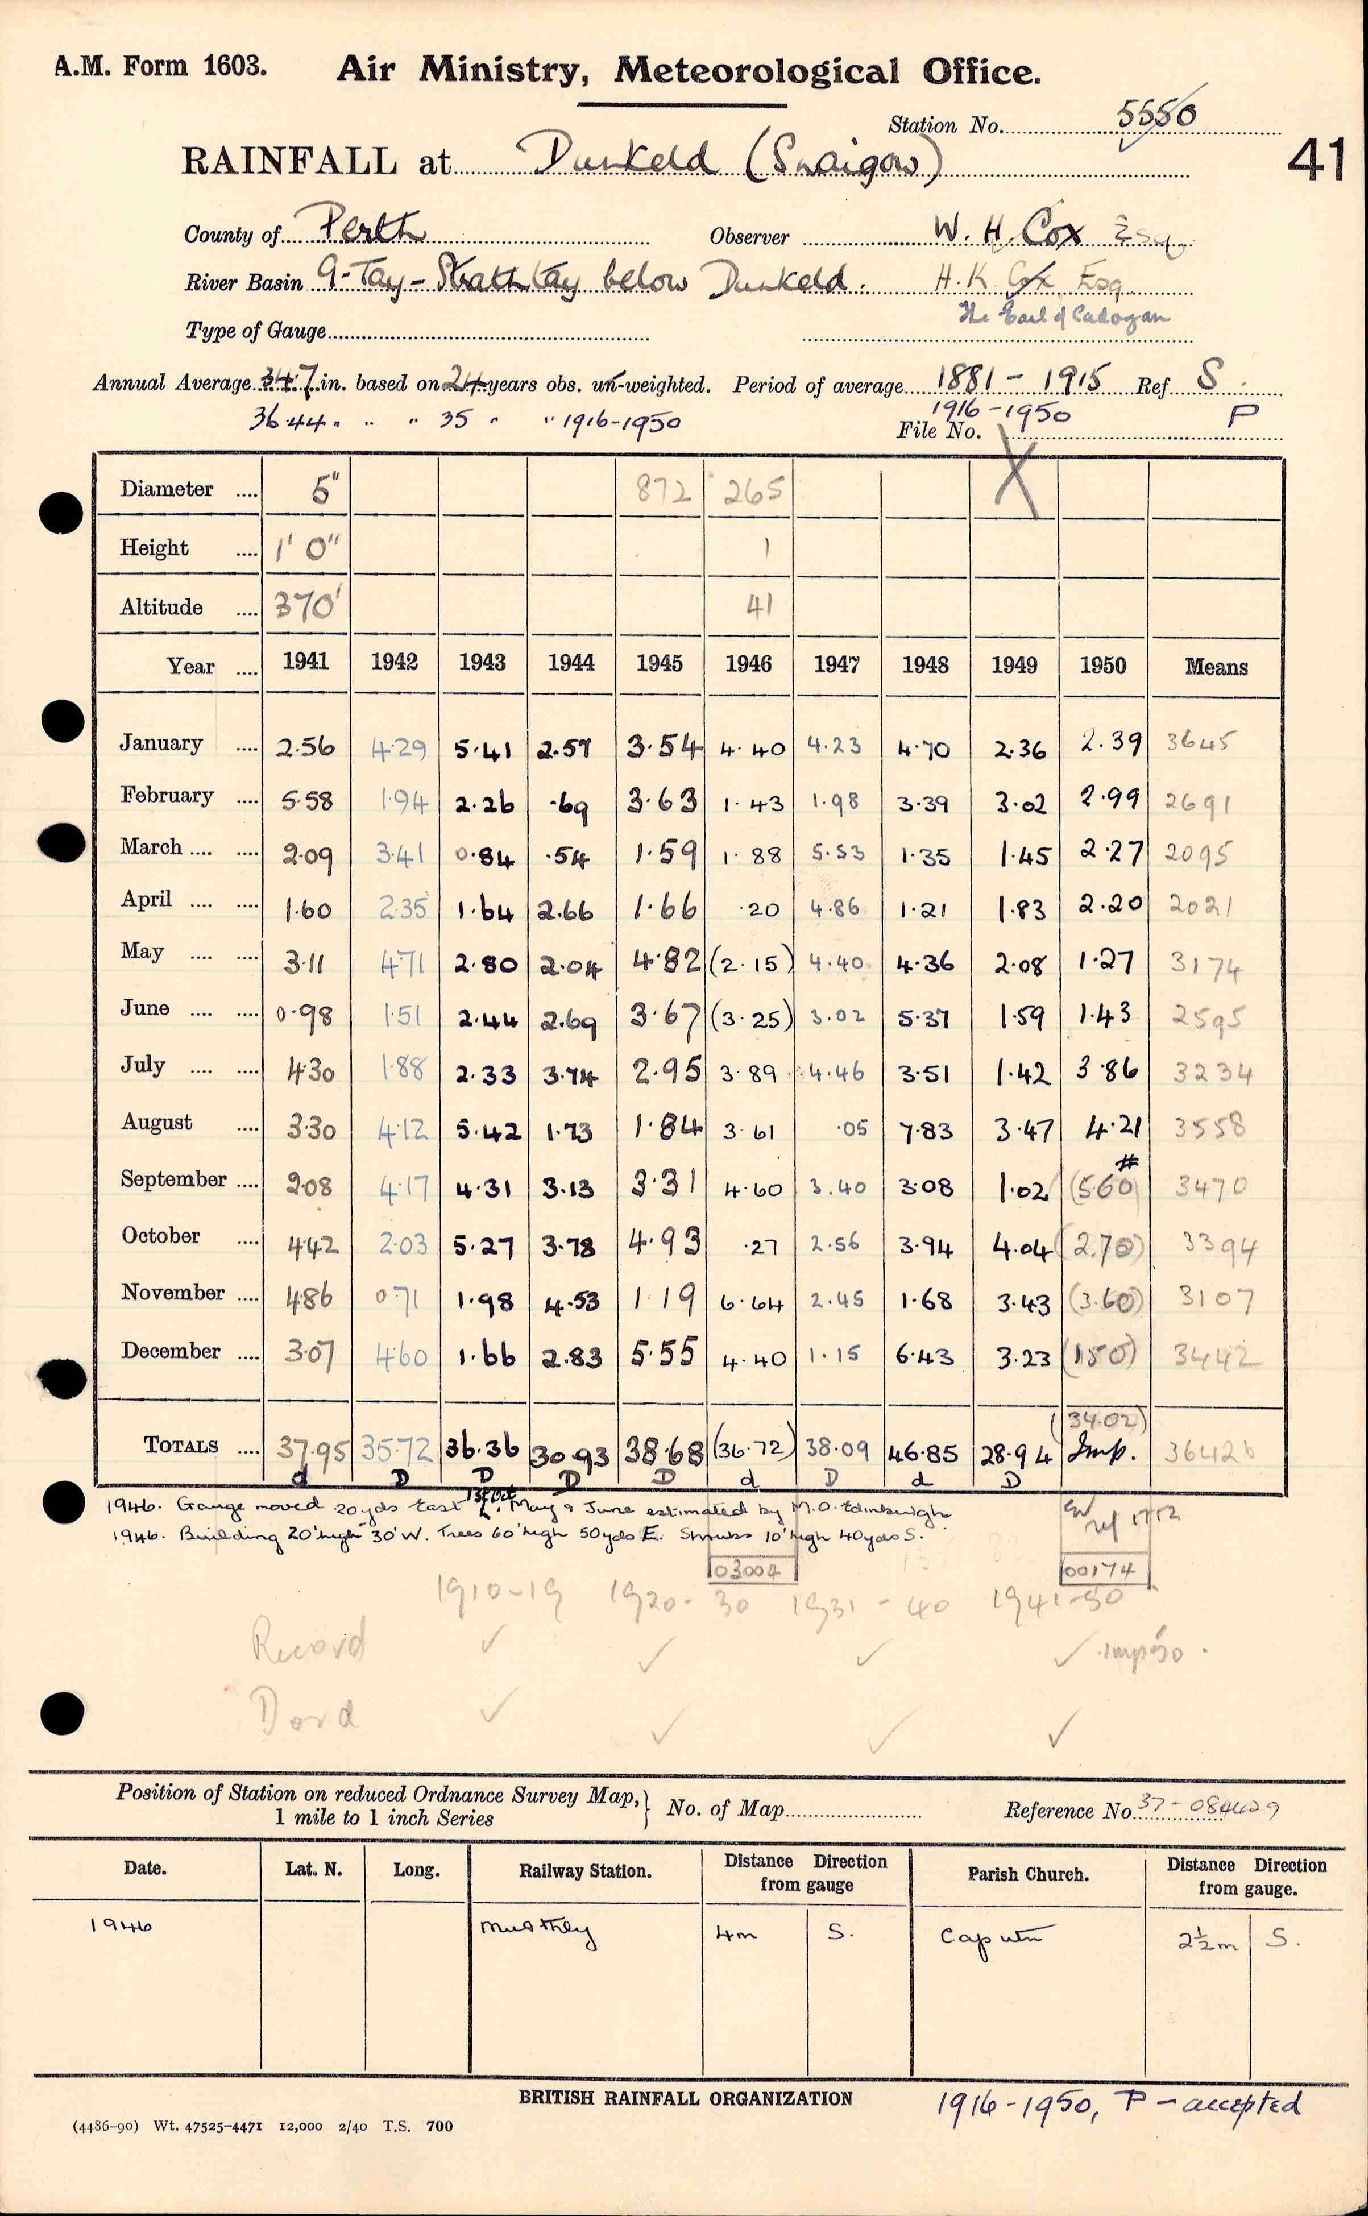 A.M. Form 1603. Air Ministry, Meteorological Office.
Station No. 5550
41
RAINFALL at Dunkeld (Snaigow)
County of Perth Observer W. H. Cox Esq
River Basin 9-Tay-Strathtay below Dunkeld. H. K. Cox Esq
The Earl of Cadogan
Type of Gauge
Annual Average 34.7 in. based on 24 years obs. un-weighted. Period of average 1881 - 1915 Ref S.
36.44 " " " 35 " " 1916-1950 1916-1950 P
File No.
Diameter .... 5" 872 265 X
Height .... 1' 0" 1
Altitude .... 370' 41
Year .... 1941 1942 1943 1944 1945 1946 1947 1948 1949 1950 Means
January .... 2.56 4.29 5.41 2.57 3.54 4.40 4.23 4.70 2.36 2.39 3645
February .... 5.58 1.94 2.26 .69 3.63 1.43 1.98 3.39 3.02 2.99 2691
March .... .... 2.09 3.41 0.84 .54 1.59 1.88 5.53 1.35 1.45 2.27 2095
April .... .... 1.60 2.35 1.64 2.66 1.66 .20 4.86 1.21 1.83 2.20 2021
May .... .... 3.11 4.71 2.80 2.04 4.82 (2.15) 4.40 4.36 2.08 1.27 3174
June .... .... 0.98 1.51 2.44 2.69 3.67 (3.25) 3.02 5.37 1.59 1.43 2595
July .... .... 4.30 1.88 2.33 3.74 2.95 3.89 4.46 3.51 1.42 3.86 3234
August .... 3.30 4.12 5.42 1.73 1.84 3.61 .05 7.83 3.47 4.21 3558
September .... 2.08 4.17 4.31 3.13 3.31 4.60 3.40 3.08 1.02 (5.60) # 3470
October .... 4.42 2.03 5.27 3.78 4.93 .27 2.56 3.94 4.04 (2.70) 3394
November .... 4.86 0.71 1.98 4.53 1.19 6.64 2.45 1.68 3.43 (3.60) 3107
December .... 3.07 4.60 1.66 2.83 5.55 4.40 1.15 6.43 3.23 (1.50) 3442
(34.02)
TOTALS .... 37.95 35.72 36.36 30.93 38.68 (36.72) 38.09 46.85 28.94 Imp. 36426
d D D D D d D d D
1946. Gauge moved 20 yds East 1st Oct. May & June estimated by M.O. Edinburgh
1946. Building 20' high 30' W. Trees 60' high 50 yds E. Shrubs 10' high 40 yds S.
03004 00174
1910-19 1920-30 1931-40 1941-50
Record ✓ ✓ ✓ ✓ imp 50.
✓ ✓ ✓ ✓
Position of Station on reduced Ordnance Survey Map, 1 mile to 1 inch Series } No. of Map Reference No. 37-084429
Date. Lat. N. Long. Railway Station. Distance Direction from gauge Parish Church. Distance Direction from gauge.
1946 Murthly 4m S. Caputh 2½m S.
BRITISH RAINFALL ORGANIZATION
1916-1950, P - accepted
(4486-90) Wt. 47525-4471 12,000 2/40 T.S. 700